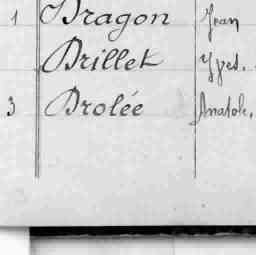 1 Dragon Jean
Brillet Yves.
3 Brolée Anatole,